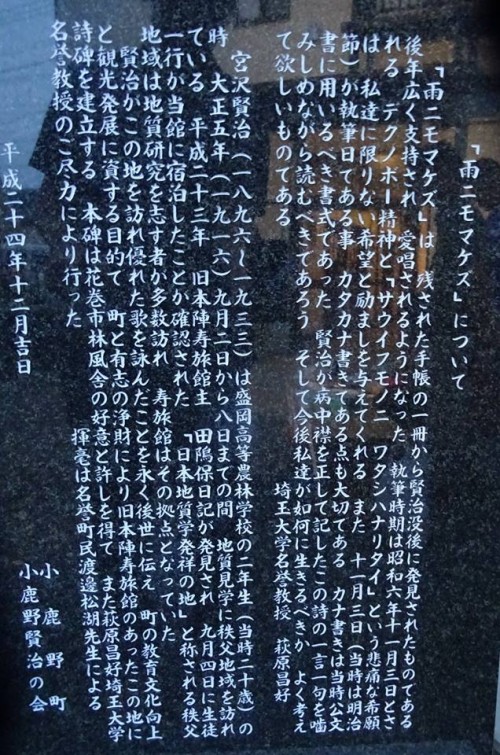 「雨ニモマケズ」について
「雨ニモマケズ」は 残された手帳の一冊から賢治没後に発見されたものである
後年広く支持され 愛唱されるようになった 執筆時期は昭和六年十一月三日とさ
れる デクノボー精神と「サウイフモノニ ワタシハナリタイ」という悲痛な希願
は 私達に限りない希望と励ましを与えてくれる また 十一月三日(当時は明治
節)が執筆日である事 カタカナ書きである点も大切である カナ書きは当時公文
書に用いるべき書式であった 賢治が病中襟を正して記したこの詩の一言一句を噛
みしめながら読むべきであろう そして今後私達が如何に生きるべきか よく考え
て欲しいものである
埼玉大学名誉教授 萩原昌好
宮沢賢治(一八九六~一九三三)は盛岡高等農林学校の二年生(当時二十歳)の
時 大正五年(一九一六)九月二日から八日までの間 地質見学に秩父地域を訪れ
ている 平成二十三年 旧本陣寿旅館主 田隝保日記が発見され 九月四日に生徒
一行が当館に宿泊したことが確認された 「日本地質学発祥の地」と称される秩父
地域は地質研究を志す者が多数訪れ 寿旅館はその拠点となっていた
賢治がこの地を訪れ優れた歌を詠んだことを永く後世に伝え 町の教育文化向上
と観光発展に資する目的で 町と有志の浄財により旧本陣寿旅館のあったこの地に
詩碑を建立する 本碑は花巻市林風舎の好意と許しを得て また萩原昌好埼玉大学
名誉教授のご尽力により行った 揮毫は名誉町民渡邉松湖先生による
平成二十四年十二月吉日
小鹿野町
小鹿野賢治の会